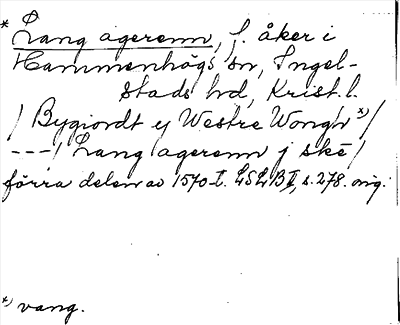 * Lang agerenn, f. åker i
Hammenhögs sn, Ingel-
stads hd, Krist.l.
/ Bygiordt ej Westre Wongh *) /
---/ Lang agerenn j ske /
förra delen av 1570-t. LSLB II, s. 278. orig.
*) vang.